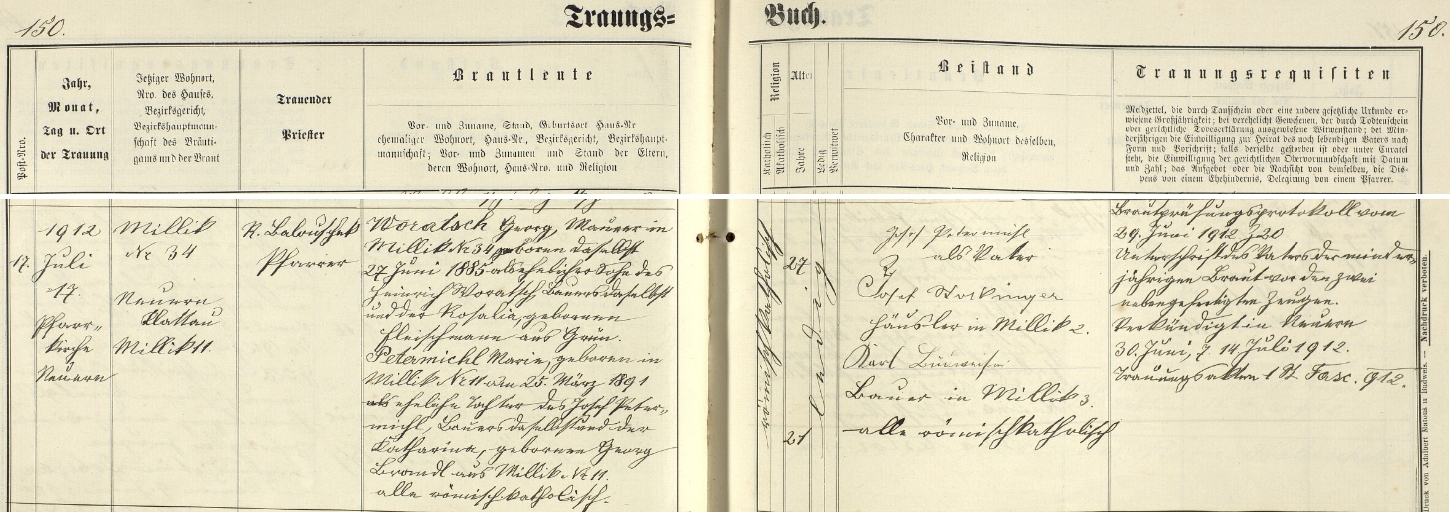 150.
Trauungs=
Buch.
150.
Post-Nro.
Jahr,
Monat,
Tag u. Ort
der Trauung
Jetziger Wohnort,
Nro. des Hauses,
Bezirksgericht,
Bezirkshauptmann-
schaft des Bräuti-
gams und der Braut
Trauender
Priester
Brautleute
Vor- und Zuname, Stand, Geburtsort Haus-Nr
ehemaliger Wohnort, Haus-Nr., Bezirksgericht, Bezirkshaupt-
mannschaft; Vor- und Zunamen und Stand der Eltern,
deren Wohnort, Haus-Nro. und Religion
Religion
Katholisch
Akatholisch
Alter
Jahre
Ledig
Verwitwet
Beistand
Vor- und Zuname,
Charakter und Wohnort desselben,
Religion
Trauungsrequisiten
Meldzettel, die durch Taufschein oder eine andere gesetzliche Urkunde er-
wiesene Großjährigkeit; bei verehelicht Gewesenen, der durch Todtenschein
oder gerichtliche Todeserklärung ausgewiesene Witwenstand; bei Min-
derjährigen die Einwilligung zur Heirat des noch lebendigen Vaters nach
Form und Vorschrift; falls derselbe gestorben ist oder unter Curatel
steht, die Einwilligung der gerichtlichen Obervormundschaft mit Datum
und Zahl; das Aufgebot oder die Nachsicht von demselben, die Dis-
pens von einem Ehehindernis, Delegirung von einem Pfarrer.
17.
1912
Juli
17.
Pfarr-
kirche
Neuern
Millik
Nr 34
Neuern
Klattau
Millik 11.
Balouschek
Pfarrer
Woratsch Georg, Maurer in
Millik Nr 34 geboren daselbst
27 Juni 1885 als ehelicher Sohn des
Heinrich Woratsch Bauers daselbst
und der Rosalia, geborenen
Fleischmann aus Grün.
Petermichl Marie, geboren in
Millik Nr 11 den 25. März 1891
als eheliche Tochter des Josef Peter-
michl, Bauers daselbst und der
Katharina, geborenen Georg
Brandl aus Millik Nr 11.
alle römisch katholisch.
römisch katholisch
27
21
ledig
Josef Petermichl
als Vater
Josef Stockinger
Häusler in Millik 2.
Karl
Bauer in Millik 3.
alle römischkatholisch
Brautprüfungsprotokoll vom
29. Juni 1912 20
Unterschrift des Vaters der minder-
jährigen Braut vor den zwei
nebengefertigten Zeugen.
Verkündigt in Neuern
30. Juni, 7. 14 Juli 1912.
Trauungsakten 1 St Fasc. 912.
Druck von Adalbert Manous in Budweis. — Nachdruck verboten.